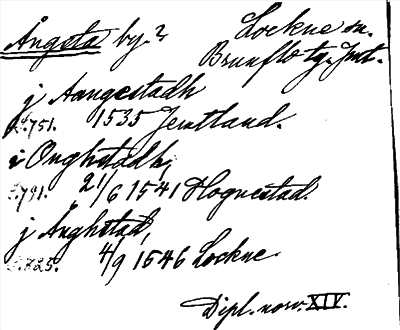 Ångsta by.? Lockne sn.
Brunflo tg. Jmt.
j Aangestadh
s. 751. 1535 Jemtland.
i Onghstadh,
s. 791. 21/6 1541 Hognestad.
j Ånghstad,
s. 825. 4/9 1546 Lockne
Dipl. norv. XIV.